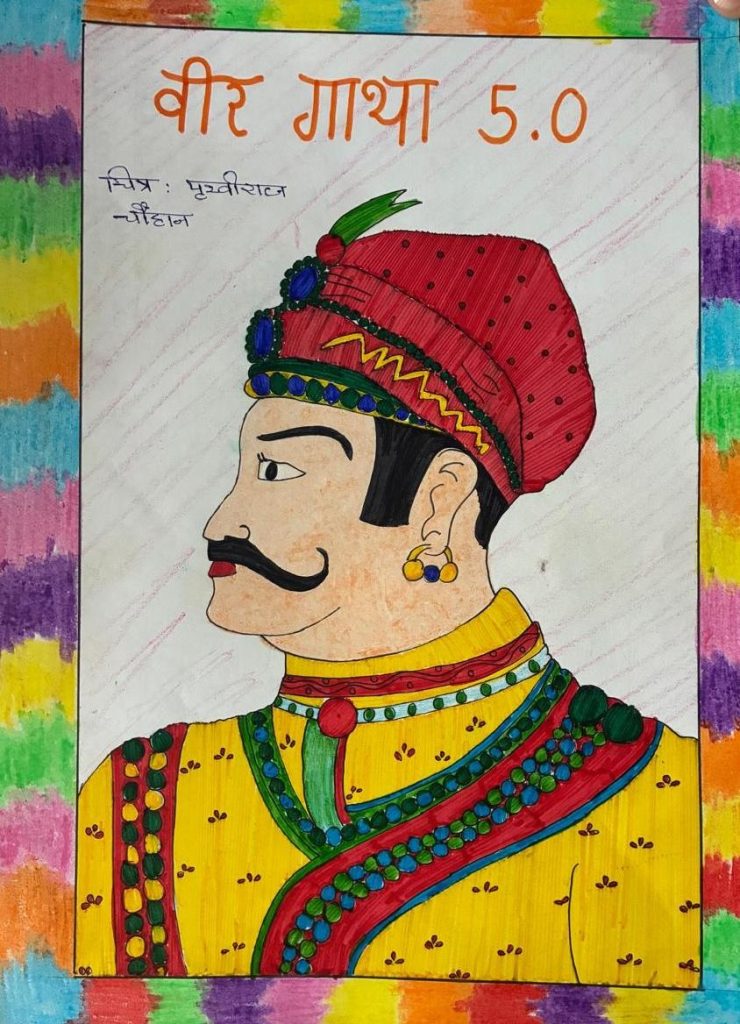 वीर गाथा 5.0
चित्र : पृथ्वीराज
चौहान